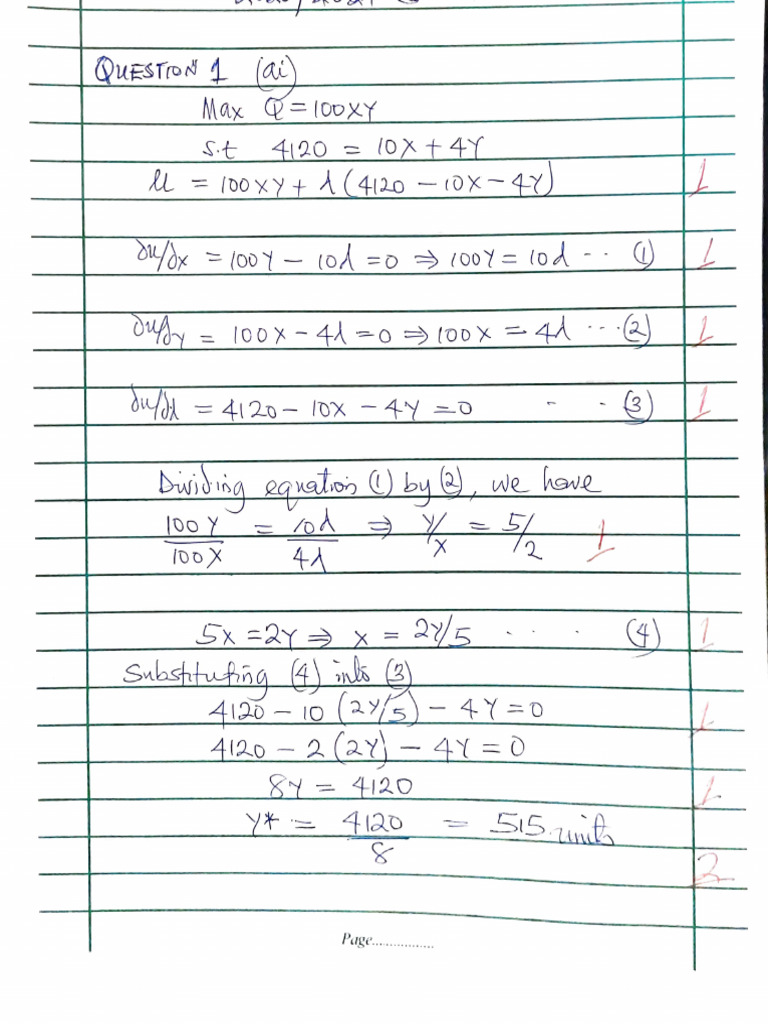 QUESTION 1 (ai)
Max Q = 100XY
s.t 4120 = 10X + 4Y
U = 100XY + λ(4120 - 10X - 4Y) 1
∂u/∂x = 100Y - 10λ = 0 ⇒ 100Y = 10λ ... (1) 1
∂u/∂Y = 100X - 4λ = 0 ⇒ 100X = 4λ ... (2) 1
∂u/∂λ = 4120 - 10X - 4Y = 0 ... (3) 1
Dividing equation (1) by (2), we have
100Y/100X = 10λ/4λ ⇒ Y/X = 5/2 1
5X = 2Y ⇒ X = 2Y/5 .... (4) 1
Substituting (4) into (3)
4120 - 10 (2Y/5) - 4Y = 0 1
4120 - 2 (2Y) - 4Y = 0
8Y = 4120 1
Y* = 4120/8 = 515 units
2
Page................